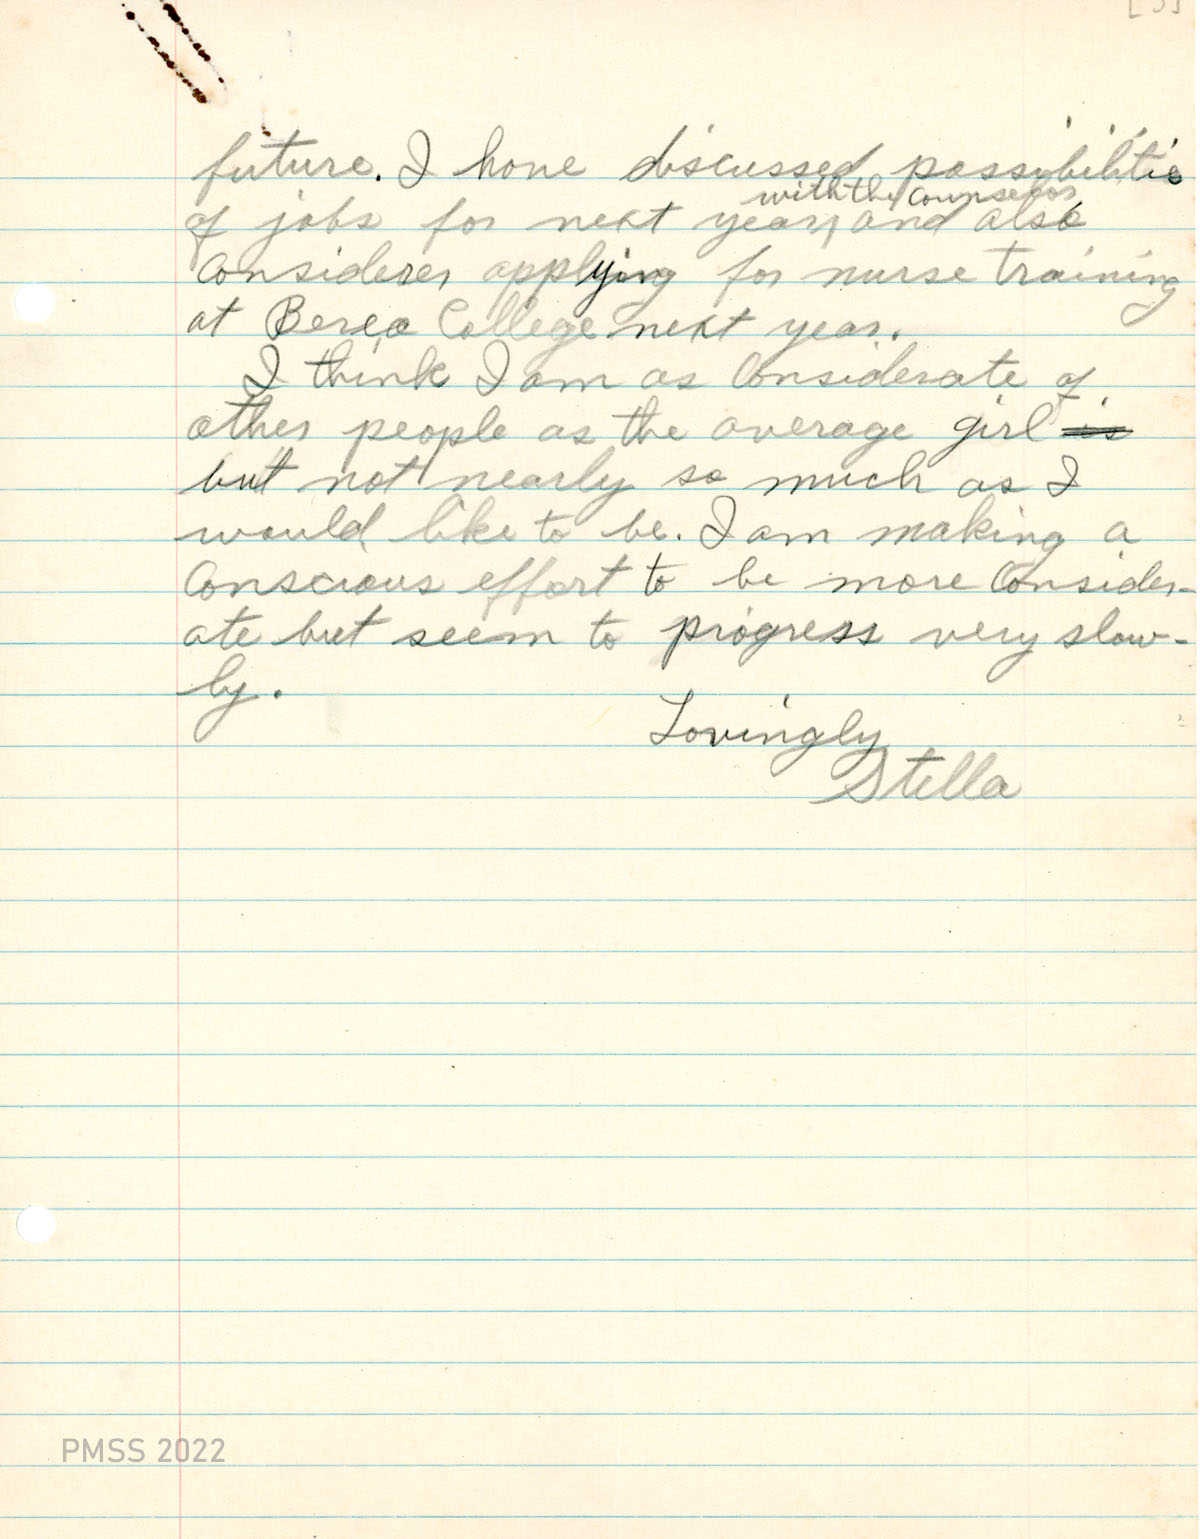 [3]
future. I have discussed possibilitie
with the counselor
of jobs for next year, and also
considerer applying for nurse training
at Berea College next year.
I think I am as considerate of
other people as the average girl is
but not nearly so much as I
would like to be. I am making a
conscious effort to be more consider-
ate but seem to progress very slow-
ly.
Lovingly
Stella
PMSS 2022